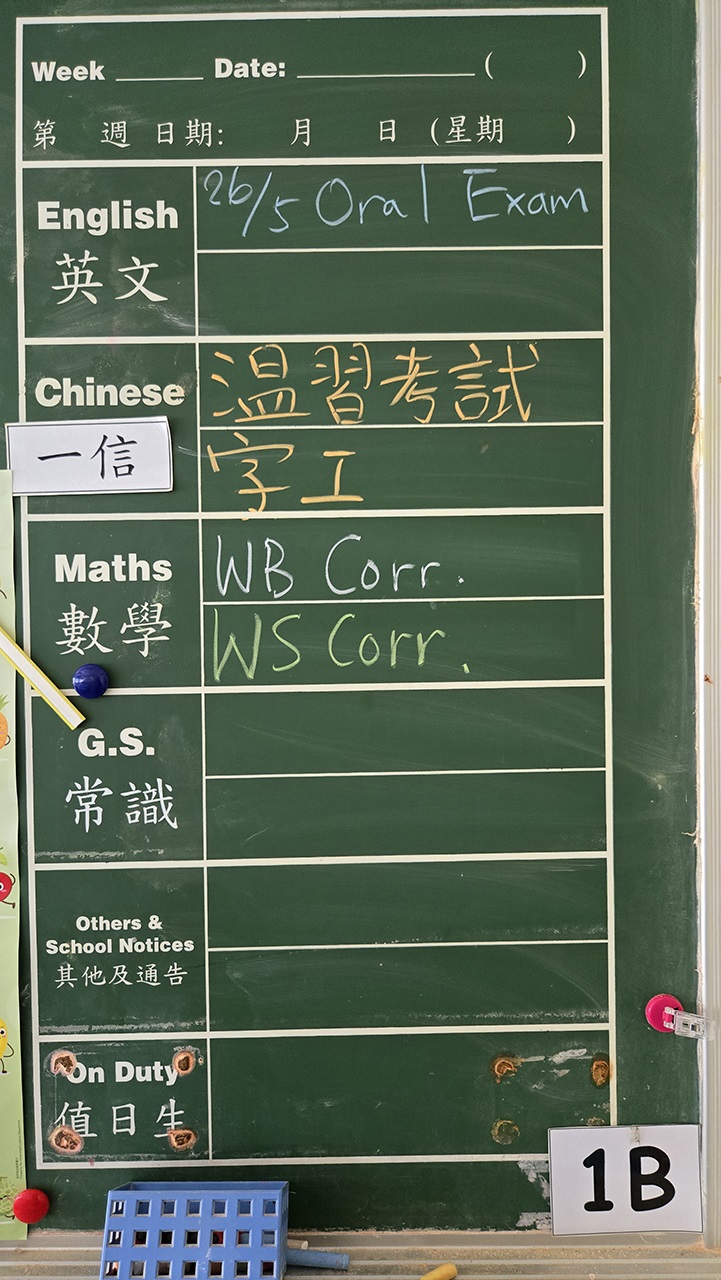 Week ______ Date: ______________ ( )
第 週 日期: 月 日 (星期 )
English
英文
26/5 Oral Exam
Chinese
一信
溫習考試
字工
Maths
數學
WB Corr.
WS Corr.
G.S.
常識
Others &
School Notices
其他及通告
On Duty
值日生
1B